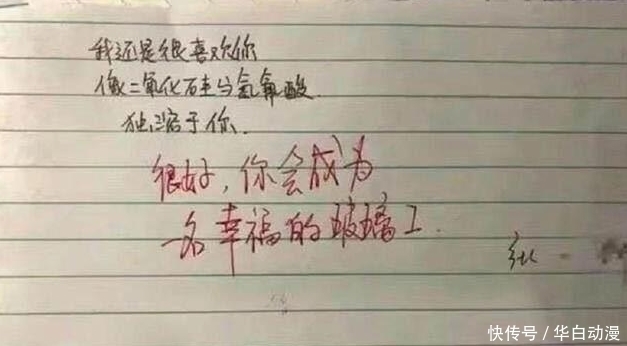 我还是很喜欢你
像二氧化硅与氢氟酸
独溶于你.
很好,你会成为
一名幸福的玻璃工.
快传号/华白动漫